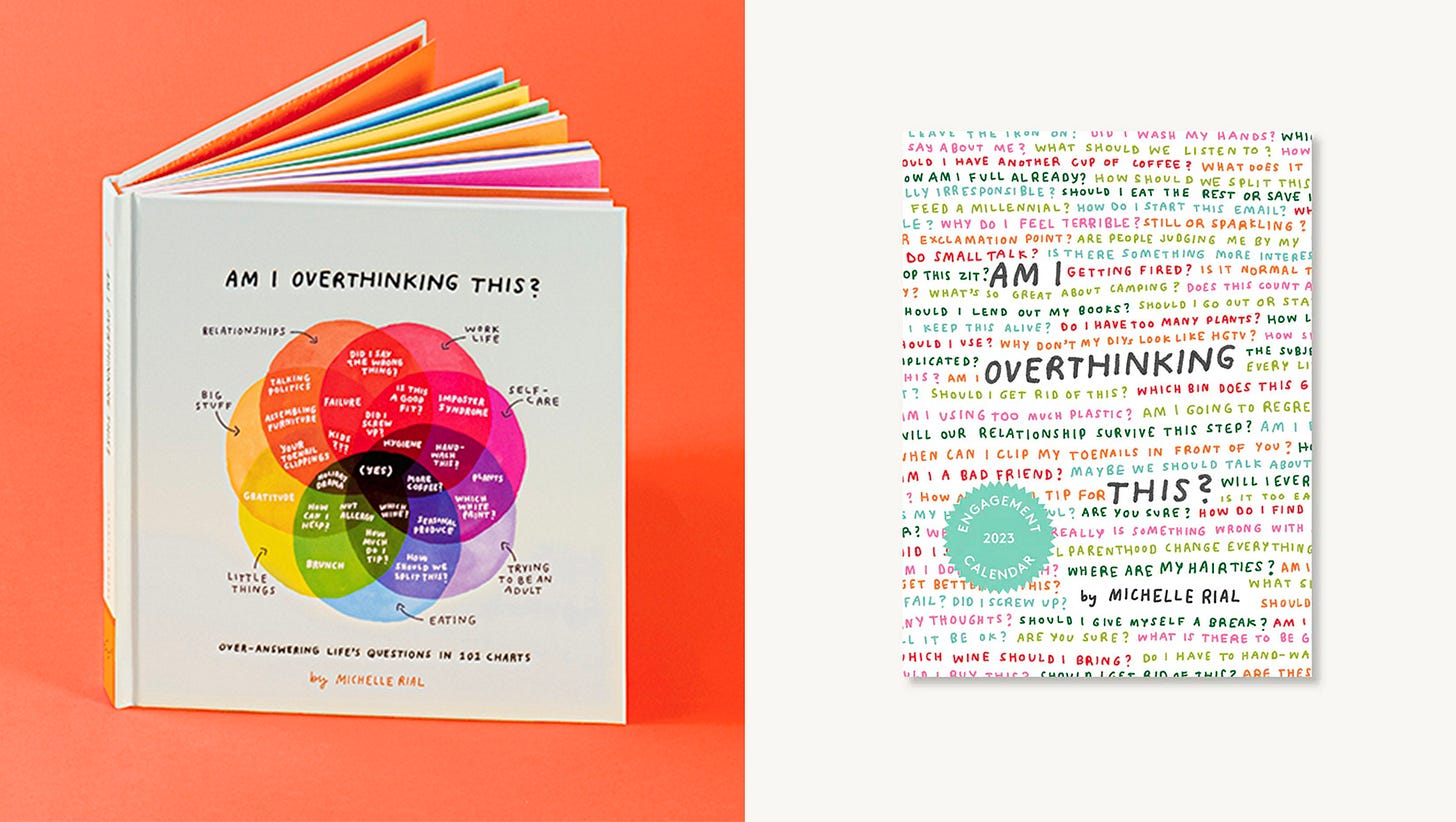 AM I OVERTHINKING THIS?
RELATIONSHIPS
WORK
LIFE
BIG
STUFF
SELF-
CARE
DID I SAY
THE WRONG
THING?
TALKING
POLITICS
IS THIS
A GOOD
FIT?
IMPOSTER
SYNDROME
FAILURE
ASSEMBLING
FURNITURE
DID I
SCREW
UP?
KIDS
???
HYGIENE
HAND-
WASH
THIS?
YOUR
TOENAIL
CLIPPINGS
(YES)
HOLIDAY
DRAMA
MORE
COFFEE?
PLANTS
GRATITUDE
HOW
CAN I
HELP?
NUT
ALLERGY
WHICH
WINE?
WHICH
WHITE
PAINT?
SEASONAL
PRODUCE
HOW
MUCH
DO I
TIP?
BRUNCH
HOW
SHOULD WE
SPLIT THIS?
LITTLE
THINGS
TRYING
TO BE AN
ADULT
EATING
OVER-ANSWERING LIFE'S QUESTIONS IN 101 CHARTS
by MICHELLE RIAL
LEAVE THE IRON ON? DID I WASH MY HANDS?
SAY ABOUT ME? WHAT SHOULD WE LISTEN TO? HOW
OULD I HAVE ANOTHER CUP OF COFFEE? WHAT DOES IT
OW AM I FULL ALREADY? HOW SHOULD WE SPLIT THIS
LLY IRRESPONSIBLE? SHOULD I EAT THE REST OR SAVE I
FEED A MILLENNIAL? HOW DO I START THIS EMAIL? WH
LE? WHY DO I FEEL TERRIBLE? STILL OR SPARKLING?
R EXCLAMATION POINT? ARE PEOPLE JUDGING ME BY MY
DO SMALL TALK? IS THERE SOMETHING MORE INTERES
OP THIS ZIT? AM I GETTING FIRED? IS IT NORMAL T
Y? WHAT'S SO GREAT ABOUT CAMPING? DOES THIS COUNT A
HOULD I LEND OUT MY BOOKS? SHOULD I GO OUT OR STA
I KEEP THIS ALIVE? DO I HAVE TOO MANY PLANTS? HOW L
HOULD I USE? WHY DON'T MY DIYs LOOK LIKE HGTV? HOW S
MPLICATED? OVERTHINKING THE SUBJE
HIS? AM I EVERY LI
T? SHOULD I GET RID OF THIS? WHICH BIN DOES THIS G
AM I USING TOO MUCH PLASTIC? AM I GOING TO REGRE
WILL OUR RELATIONSHIP SURVIVE THIS STEP? AM I
WHEN CAN I CLIP MY TOENAILS IN FRONT OF YOU? HO
AM I A BAD FRIEND? MAYBE WE SHOULD TALK ABOUT
? HOW TIP FOR THIS? WILL I EVER
IS IT TOO EA
S MY H UL? ARE YOU SURE? HOW DO I FIND
A? WE REALLY IS SOMETHING WRONG WITH
DID I L PARENTHOOD CHANGE EVERYTHING
M I DO H? WHERE ARE MY HAIRTIES? AM I
ENGAGEMENT
2023
CALENDAR
GET BETTE THIS? WHAT S
FAIL? DID I SCREW UP? by MICHELLE RIAL SHOULD
NY THOUGHTS? SHOULD I GIVE MYSELF A BREAK? AM I
LL IT BE OK? ARE YOU SURE? WHAT IS THERE TO BE G
WHICH WINE SHOULD I BRING? DO I HAVE TO HAND-WA
ULD I BUY THIS? SHOULD I GET RID OF THIS? ARE THES